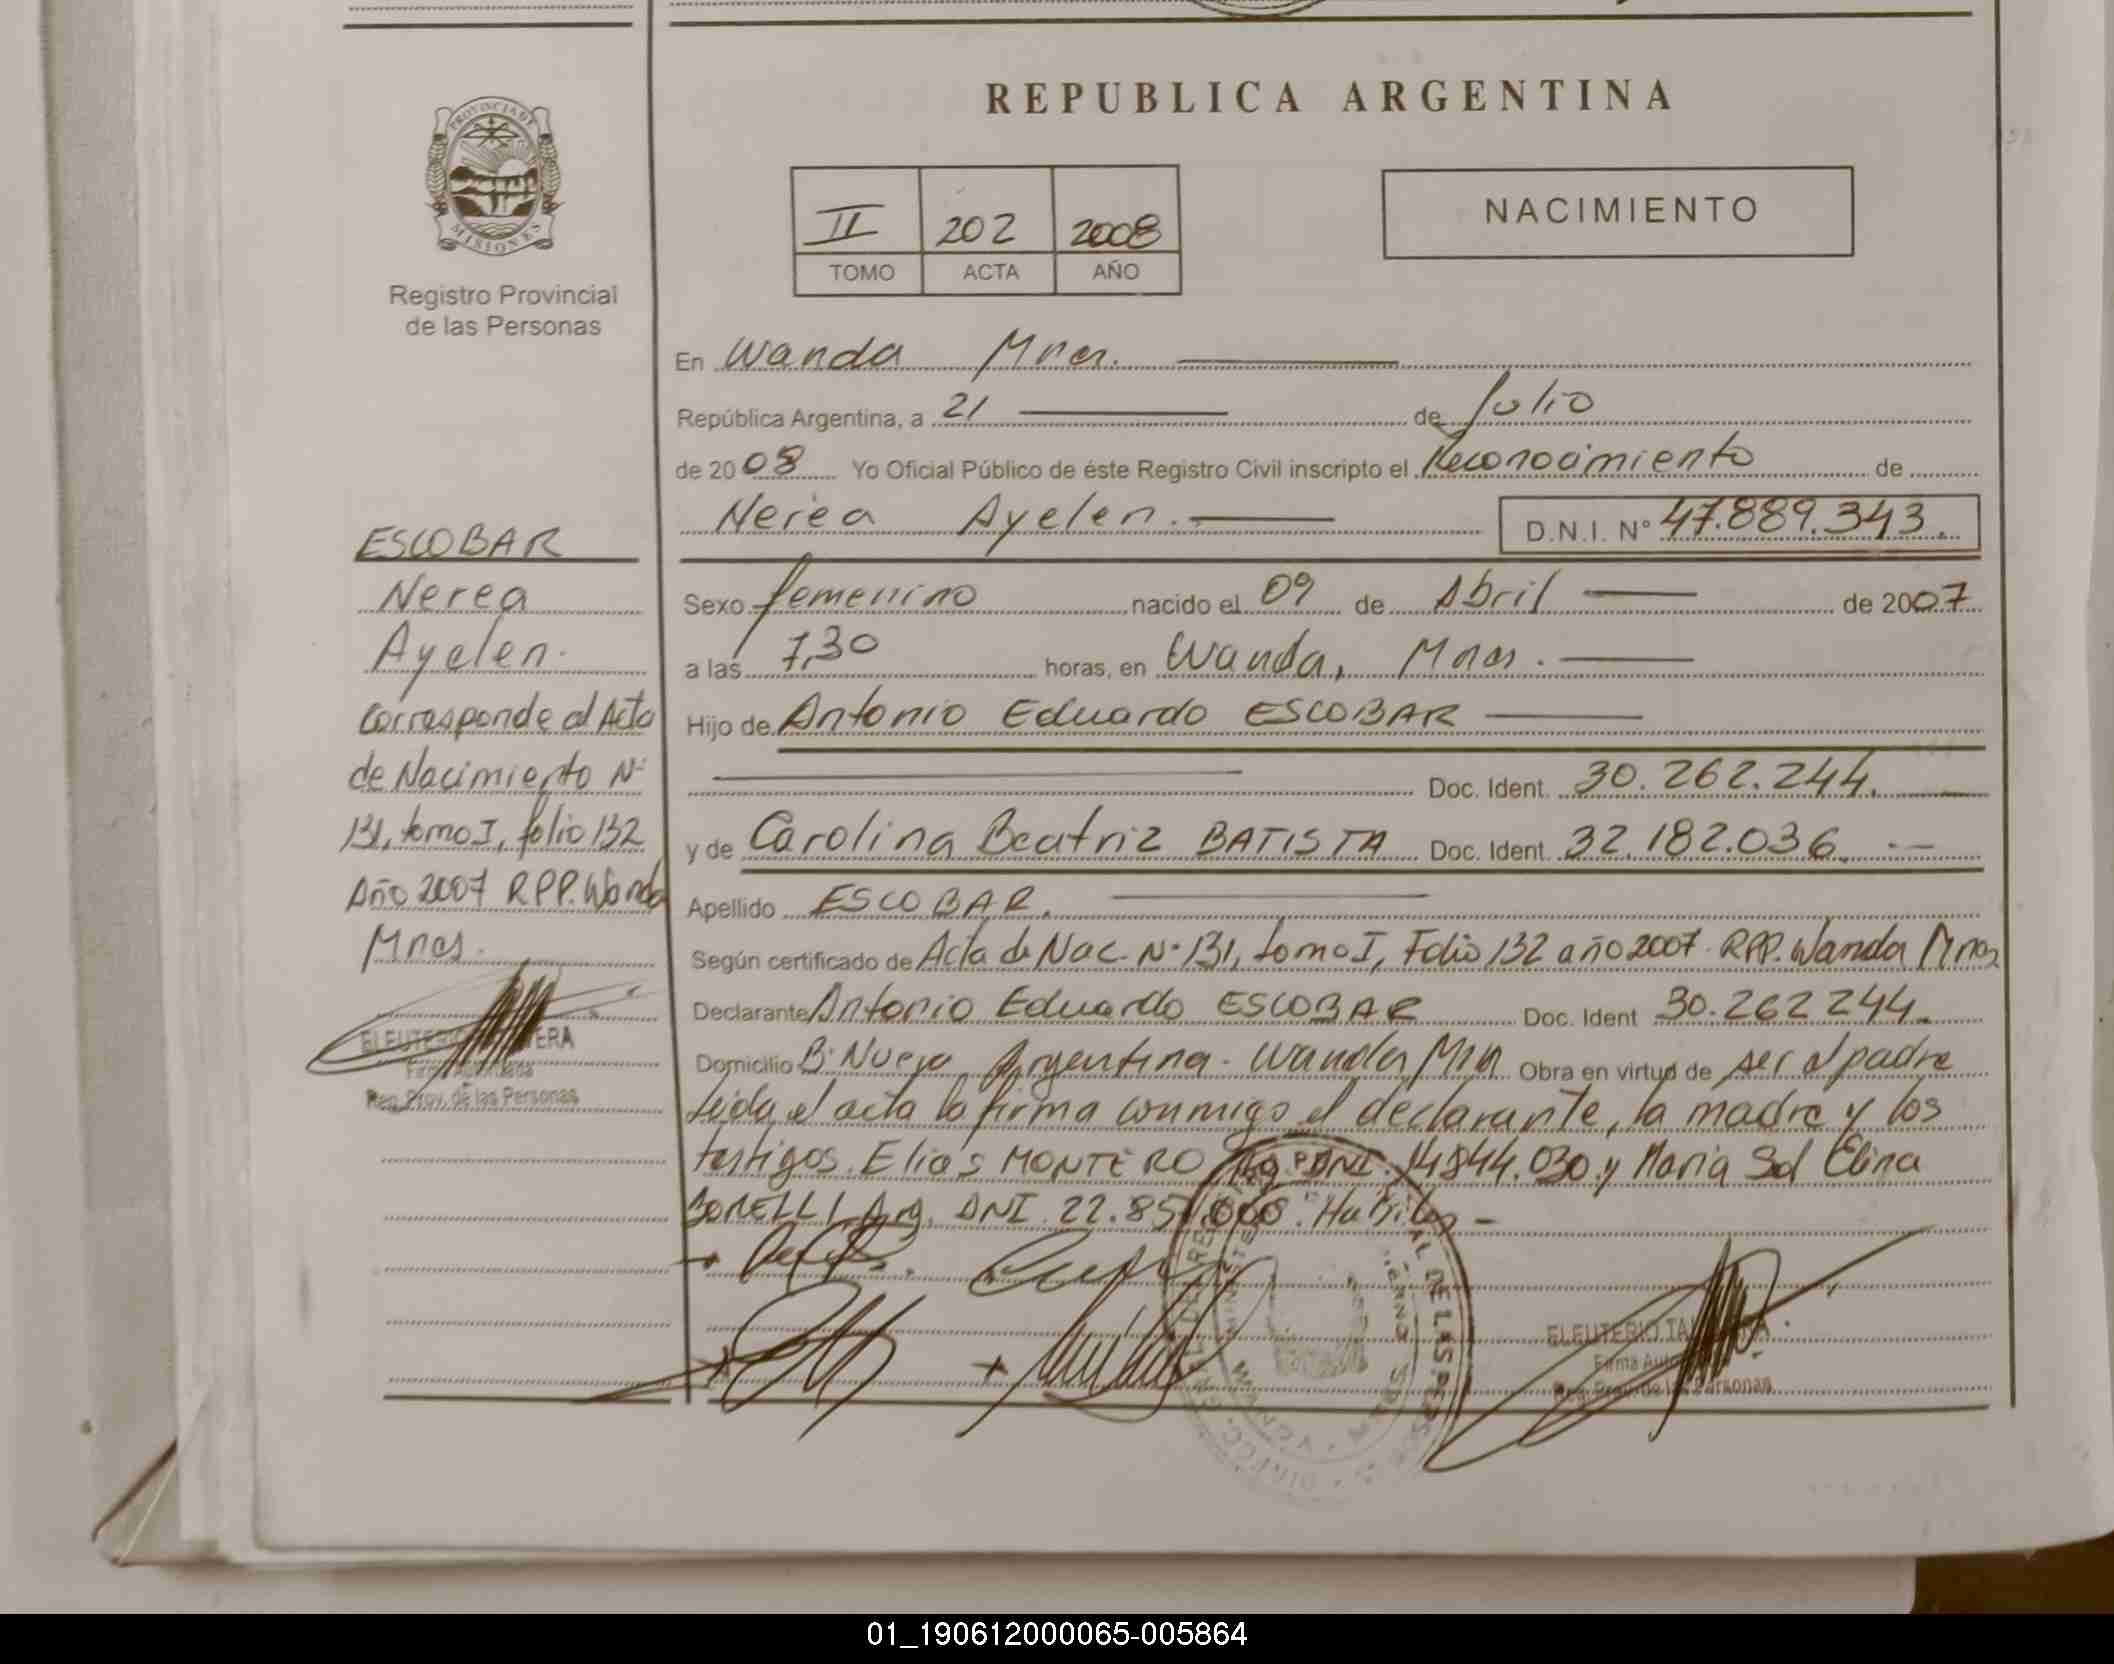 PROVINCIA DE
MISIONES
Registro Provincial
de las Personas
REPUBLICA ARGENTINA
II 202 2008
TOMO ACTA AÑO
NACIMIENTO
En Wanda Mnes.
República Argentina, a 21 de Julio
de 2008 Yo Oficial Público de éste Registro Civil inscripto el Reconocimiento de
Nerea Ayelen. D.N.I. N° 47.889.343.
Sexo femenino nacido el 09 de Abril de 2007
a las 7,30 horas, en Wanda, Mnes.
Hijo de Antonio Eduardo ESCOBAR
Doc. Ident. 30.262.244.
y de Carolina Beatriz BATISTA Doc. Ident. 32.182.036.
Apellido ESCOBAR.
Según certificado de Acta de Nac. N° 131, tomo I, Folio 132 año 2007. RPP. Wanda Mnes
Declarante Antonio Eduardo ESCOBAR Doc. Ident 30.262.244.
Domicilio B° Nueva Argentina - Wanda, Mnes Obra en virtud de ser el padre
leida el acta la firma conmigo el declarante, la madre y los
testigos. Elias MONTERO Arg. DNI. 14.844.030 y Maria Sol Elina
Arg. DNI. 22.85 Habiles -
ESCOBAR
Nerea
Ayelen.
Corresponde al Acta
de Nacimiento N°
131, tomo I, folio 132
Año 2007 RPP. Wanda
Mnes.
ELEUTERIO
Firma Autorizada
Reg. Prov. de las Personas
ELEUTERIO
Firma
Reg. Prov. de las Personas
01_190612000065-005864